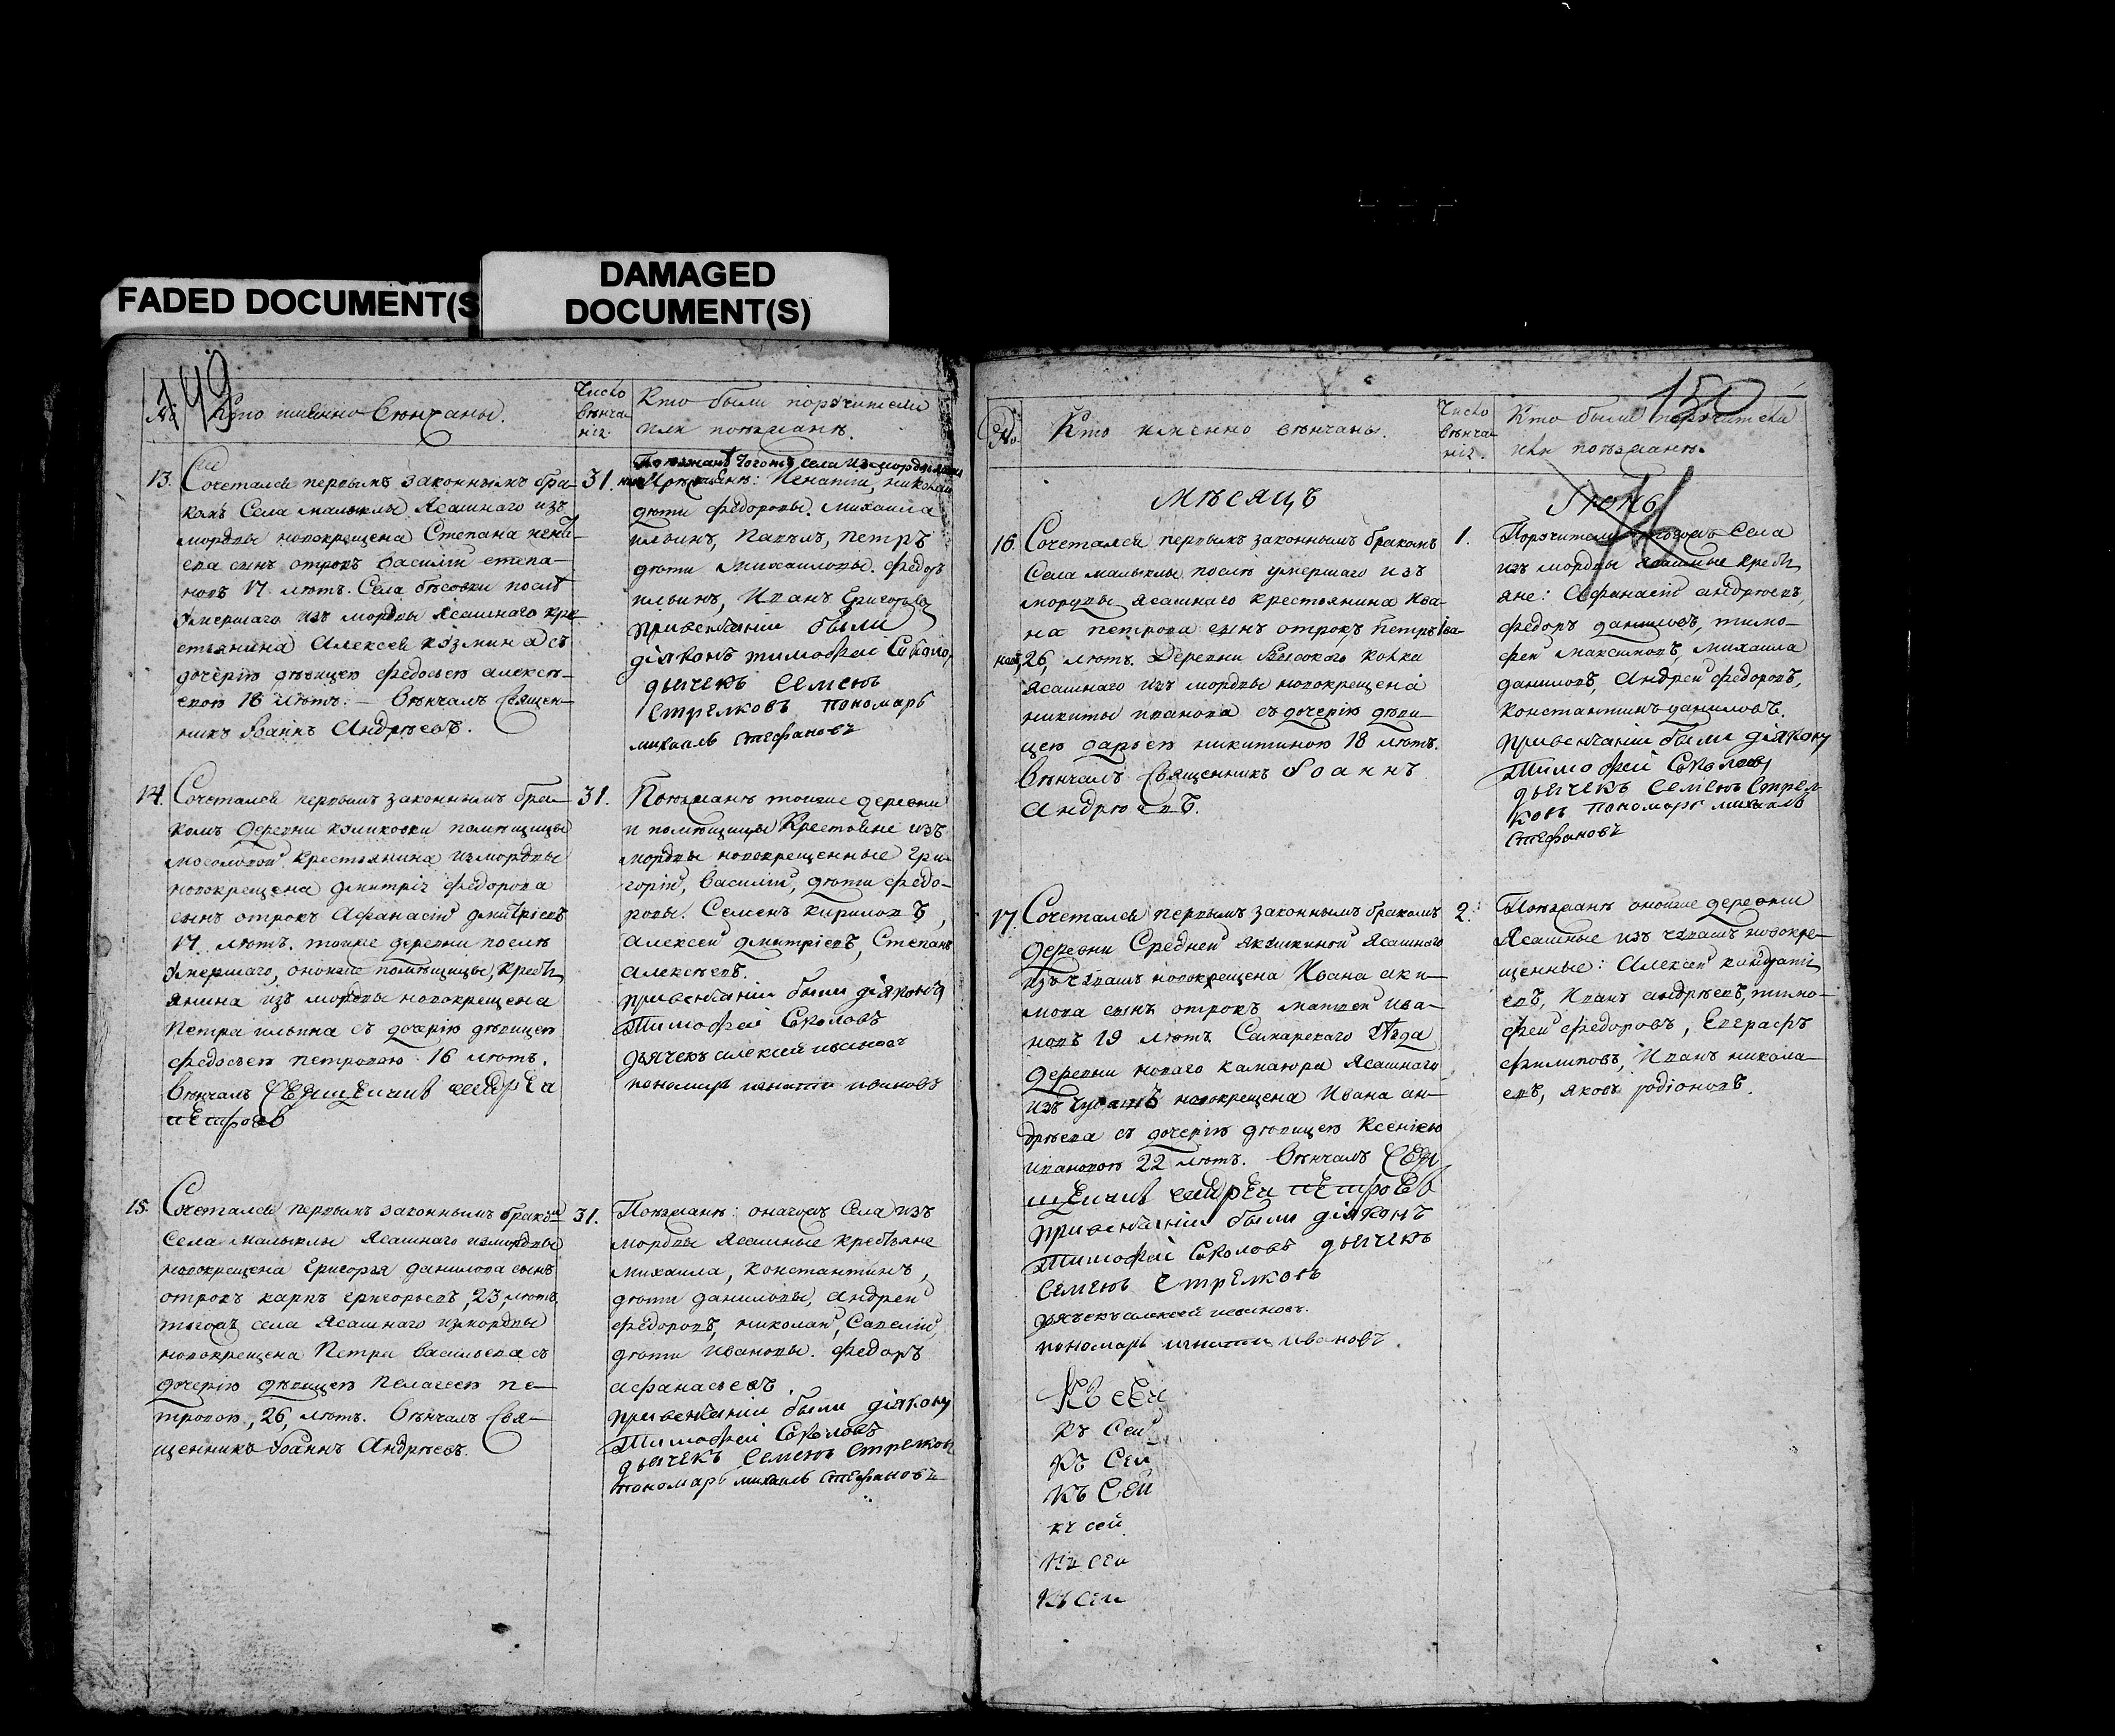 FADED DOCUMENT(S
DAMAGED
DOCUMENT(S)
149
№
Кто имянно вѣнчаны.
Число
вѣнча
нія.
Кто были поручители
или поѣзжанѣ.
13.
Сочетался первымъ законнымъ бра-
комъ Села малыклы Ясашнаго изъ
мордвы новокрещена Степана
сынъ отрокъ василій степа-
новъ 17 лѣтъ. Села бѣсовки послѣ
умершаго изъ мордвы Ясашнаго кре-
стьянина Алексея козмина съ
дочерію дѣвицею Федосьею алексѣ-
евою 18 лѣтъ. – Вѣнчалъ Священ-
никъ Іоаннъ Андрѣевъ.
31.
Поѣзжанѣ тогожъ села изъ мордвы
Игнатій, николай
дѣти федоровы. Михаила
ильинъ, Павелъ, петръ
дѣти Михаиловы. федоръ
ильинъ, Иванъ Григорьевъ
привенчаніи были
діяконъ тимофей Соколо
дьячекъ Семенъ
Стрелковъ пономарь
михаилъ стефановъ
14.
Сочетался первымъ законнымъ бра-
комъ деревни куликовки помѣщицы
мосоловой крестьянина изъ мордвы
новокрещена дмитрія федорова
сынъ отрокъ Афанасій дмитріевъ
17 лѣтъ. тоиже деревни послѣ
умершаго, оноиже помѣщицы, кресть
янина изъ мордвы новокрещена
Петра ильина съ дочерію дѣвицею
федосьею петровою 16 лѣтъ.
Вѣнчалъ священникъ андрей
петровъ
31.
Поѣзжанѣ тоиже деревни
и помѣщицы Крестьяне изъ
мордвы новокрещенные Гри-
горій, василій, дѣти федо-
ровы. Семенъ кириловъ,
алексей дмитріевъ, Степанъ
алексѣевъ.
привенчаніи были діяконъ
Тимофей Соколовъ
дьячекъ алексей ивановъ
пономарь игнатій ивановъ
15.
Сочетался первымъ законнымъ бракомъ
Села малыклы Ясашнаго изъ мордвы
новокрещена Григорья данилова сынъ
отрокъ карпъ григорьевъ, 23, лѣтъ
тогожъ села Ясашнаго изъ мордвы
новокрещена Петра васильева съ
дочерію дѣвицею Пелагеею пе-
тровою, 26, лѣтъ. Вѣнчалъ Свя-
щенникъ Іоаннъ Андрѣевъ.
31.
Поѣзжанѣ: оногожъ Села изъ
мордвы Ясашные крестьяне
михаила, константинъ,
дѣти даниловы, андрей
федоровъ, николай, Савелій,
дѣти Ивановы. федоръ
афанасьевъ.
привенчаніи были діяконъ
Тимофей Соколовъ
дьячекъ Семенъ Стрелков
пономарь михаилъ Стефановъ
150
№
Кто имянно вѣнчаны.
Число
вѣнча
нія.
Кто были поручители
или поѣзжанѣ.
Мѣсяцъ Іюнь
16.
Сочетался первымъ законнымъ бракомъ
Села малыклы послѣ умершаго изъ
мордвы ясашнаго крестьянина Ива-
на петрова сынъ отрокъ петръ Ива-
новъ, 26, лѣтъ. Деревни Высокого колка
ясашнаго изъ мордвы новокрещена
никиты иванова съ дочерію дѣви-
цею дарьею никитиною 18 лѣтъ.
Вѣнчалъ Священникъ Іоаннъ
Андрѣевъ.
1.
Поручители тогожъ Села
изъ мордвы ясашные кресть
яне: Афанасій андрѣевъ,
федоръ даниловъ, тимо-
фей максимовъ, михаила
даниловъ, Андрей федоровъ,
константинъ даниловъ.
привенчаніи были діякону
Тимофей Соколовъ
дьячекъ Семенъ Стрел
ковъ пономарь михаилъ
стефановъ
17.
Сочетался первымъ законнымъ бракомъ
деревни Средней якушкиной Ясашнаго
изъ чувашъ новокрещена Ивана аки-
мова сынъ отрокъ матвей ива-
новъ 19 лѣтъ. Самарскаго уѣзда
деревни новаго Ясашнаго
изъ чувашъ новокрещена Ивана ан-
дрѣева съ дочерію дѣвицею Ксеніею
ивановою 22 лѣтъ. Вѣнчалъ Свя
щенникъ андрей петровъ
привенчаніи были діяконъ
Тимофей Соколовъ дьячекъ
Семенъ Стрелковъ
дьячекъ алексей ивановъ.
пономарь игнатій ивановъ.
Къ сей
къ сей
къ сей
къ сей
къ сей
къ сей
къ сей
2.
Поѣзжанѣ оноиже деревни
Ясашные изъ чувашъ новокре-
щенные: Алексей кондрать
евъ, Иванъ андрѣевъ, тимо-
фей федоровъ, Евграфъ
филиповъ, Иванъ никола-
евъ, яковъ родіоновъ.